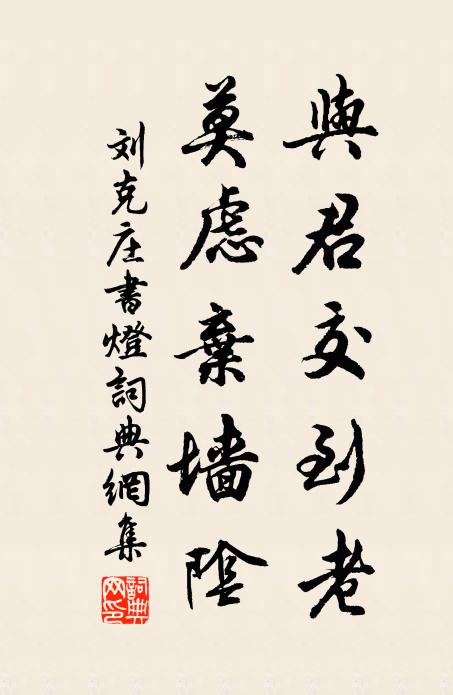 與君交到老
莫慮棄墻陰
刘克庄書燈詞典網集
詞典
网印